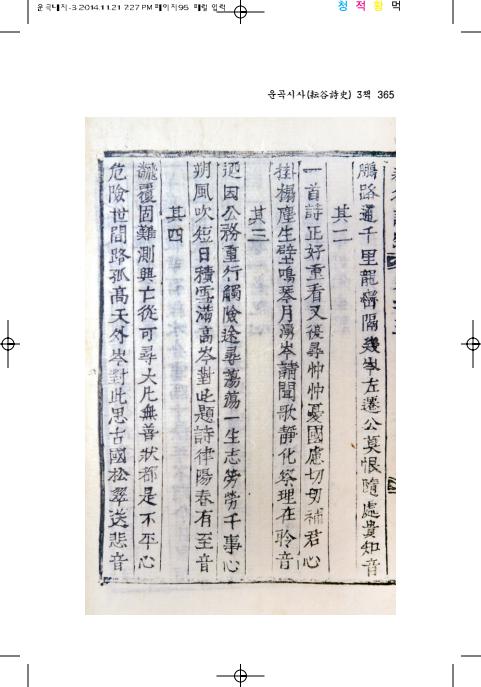 운곡내지-3 2014.11.21 7:27 PM 페이지95 매월 입력
청 적 황 먹
운곡시사(耘谷詩史) 3책 365
鵬路通千里龍門隔幾岑左遷公莫恨隨處貴知音
其二
一首詩正好重看又復尋忡忡憂國慮切切補君心
掛榻塵生壁鳴琴月滿岑請聞歌靜化察理在聆音
其三
迺因公務重行觸險途尋蕩蕩一生志勞勞千事心
朔風吹短日積雪滿高岑對此題詩律陽春有至音
其四
覆固難測興亡從可尋大凡無善狀都是不平心
危險世間路孤高天外岑對此思古國松翠送悲音